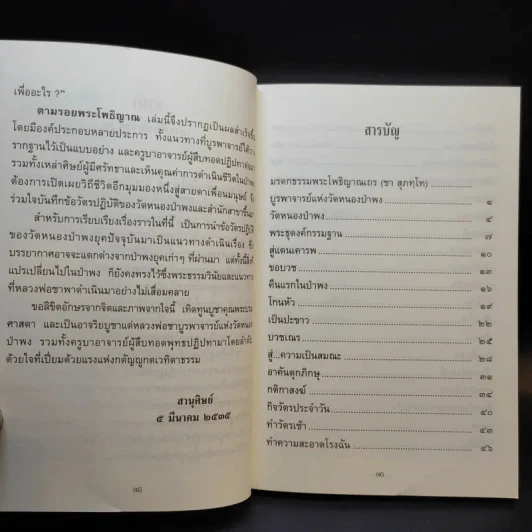 เพื่ออะไร ?"
ตามรอยพระโพธิญาณ เล่มนี้จึงปรากฏเป็นผลสำเร็จขึ้น
โดยมีองค์ประกอบหลายประการ ทั้งแนวทางที่บูรพาจารย์ได้วาง
รากฐานไว้เป็นแบบอย่าง และครูบาอาจารย์ผู้สืบทอดปฏิปทา
รวมทั้งเหล่าศิษย์ผู้มีศรัทธาและเห็นคุณค่าการดำเนินชีวิตในป่าพง
ต้องการเปิดเผยวิถีชีวิตอีกมุมมองหนึ่งสู่สายตาเพื่อนมนุษย์
ร่วมใจบันทึกข้อวัตรปฏิบัติของวัดหนองป่าพงและสำนักสาขาขึ้น
สำหรับการเรียบเรียงเรื่องราวในที่นี้ เป็นการนำข้อวัตรปฏิบัติ
ของวัดหนองป่าพงยุคปัจจุบันมาเป็นแนวทางดำเนินเรื่อง ซึ่ง
บรรยากาศอาจจะแตกต่างจากป่าพงยุคเก่าๆ ที่ผ่านมา แต่ทั้งนี้สิ่งที่
แปรเปลี่ยนไปในป่าพง ก็ยังคงทรงไว้ซึ่งพระธรรมวินัยและแนวทาง
ที่หลวงพ่อชาพาดำเนินมาอย่างไม่เสื่อมคลาย
ขอลิขิตอักษรจากจิตและภาพจากใจนี้ เทิดทูนบูชาคุณพระบรม
ศาสดา และเป็นอาจริยบูชาแด่หลวงพ่อชาบูรพาจารย์แห่งวัดหนอง
ป่าพง รวมทั้งครูบาอาจารย์ผู้สืบทอดพุทธปฏิปทามาโดยลำดับ
ด้วยใจที่เปี่ยมด้วยแรงแห่งกตัญญูกตเวทิตาธรรม
สานุศิษย์
๕ มีนาคม ๒๕๓๕
(๘)
สารบัญ
มรดกธรรมพระโพธิญาณเถร (ชา สุภทฺโท)
บูรพาจารย์แห่งวัดหนองป่าพง ๑
วัดหนองป่าพง ๕
พระธุดงค์กรรมฐาน ๗
สู่แดนเคารพ ๑๐
ขอบวช ๑๒
คืนแรกในป่าพง ๑๖
โกนหัว ๑๙
เป็นปะขาว ๒๒
บวชเณร ๒๕
สู่...ความเป็นสมณะ ๒๘
อาคันตุกภิกษุ ๓๑
กติกาสงฆ์ ๓๔
กิจวัตรประจำวัน ๔๐
ทำวัตรเช้า ๔๓
ทำความสะอาดโรงฉัน ๔๖
(๙)